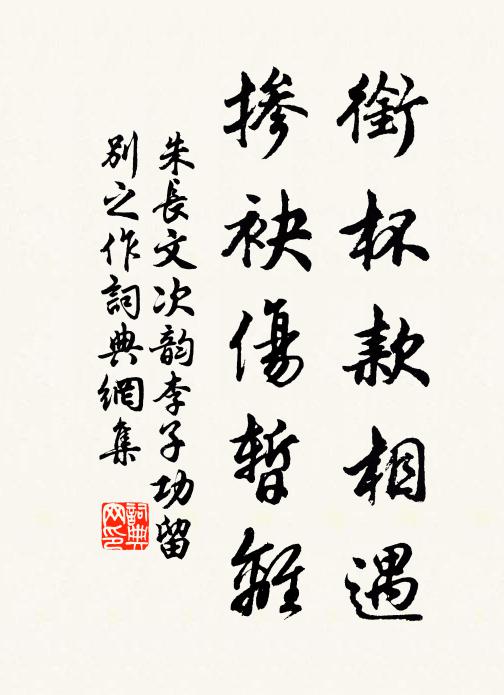 銜杯款相遇
掺袂傷暫離
朱長文次韵李子功留
别之作詞典網集
詞典网印